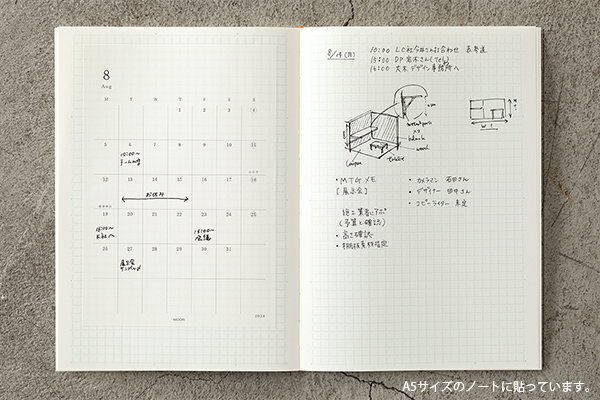 8
Aug
M T W T F S S
1 2 3 4
5 6 7 8 9 10 11
10:00〜
12 13 14 15 16 17 18
お休み
19 20 21 22 23 24 25
15:00〜
18:00〜
会議
26 27 28 29 30 31
展示会
2024
8/19 (月)
10:00 LC社今井さん打合わせ 表参道
15:00 DP 高木さん(Tel)
16:00 大木デザイン事務所へ
wood
table
W
・MTG メモ
[展示会]
施工業者に
(予算と確認)
・高さ確認
・棚板素材指定
・カメラマン 石田さん
・デザイナー 田中さん
・コピーライター 未定
A5サイズのノートに貼っています。